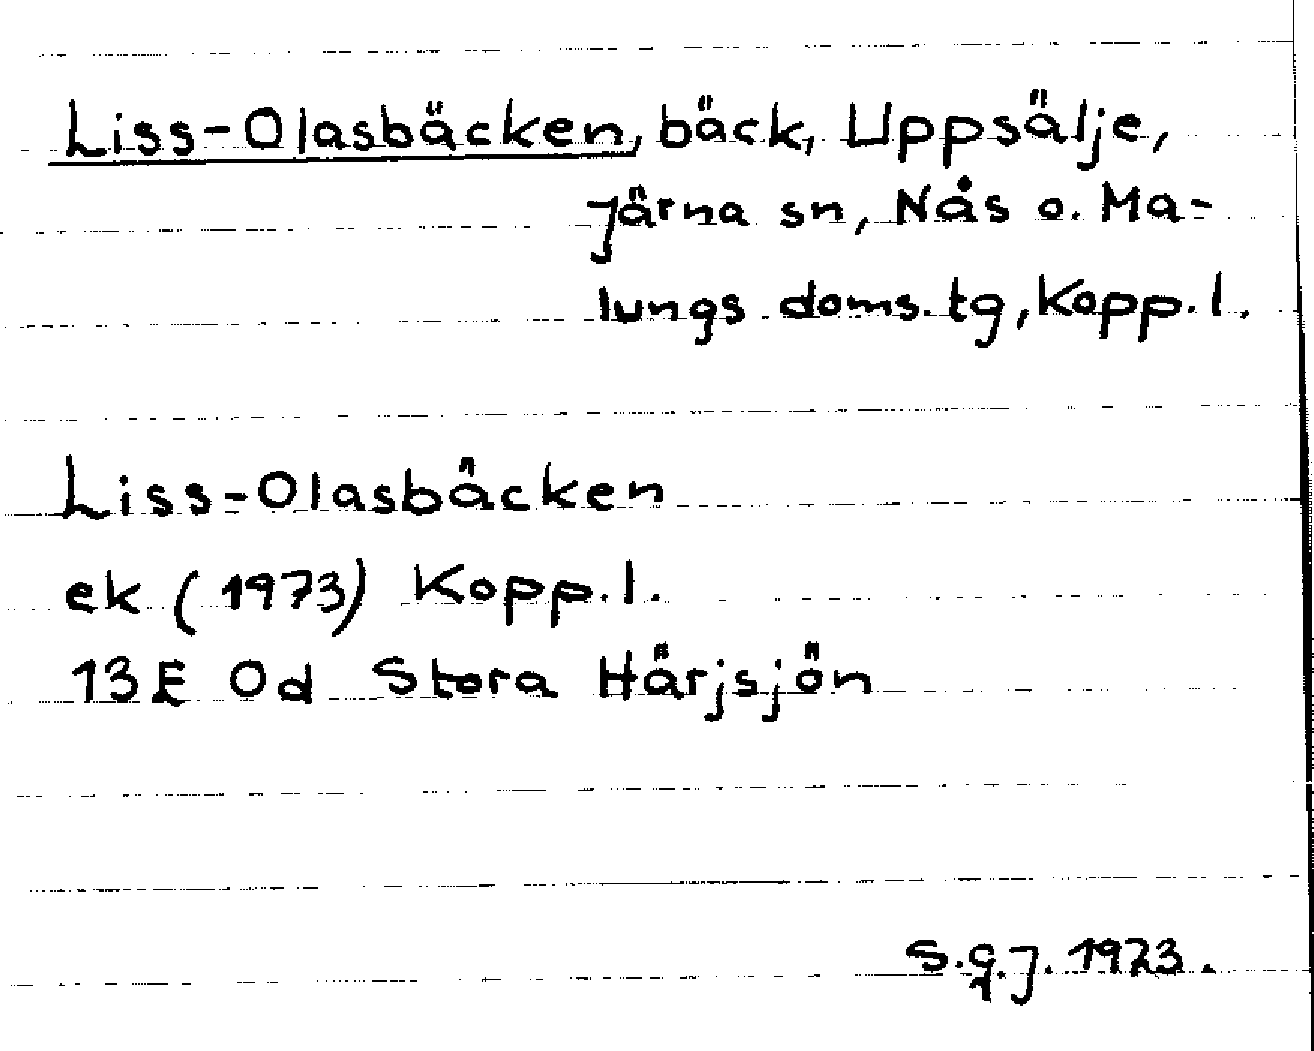 Liss-Olasbäcken, bäck, Uppsälje,
Järna sn, Nås o. Ma-
lungs doms.tg, Kopp.l.
Liss-Olasbäcken
ek (1973) Kopp.l.
13E 0d Stora Härjsjön
S.g.J. 1973.